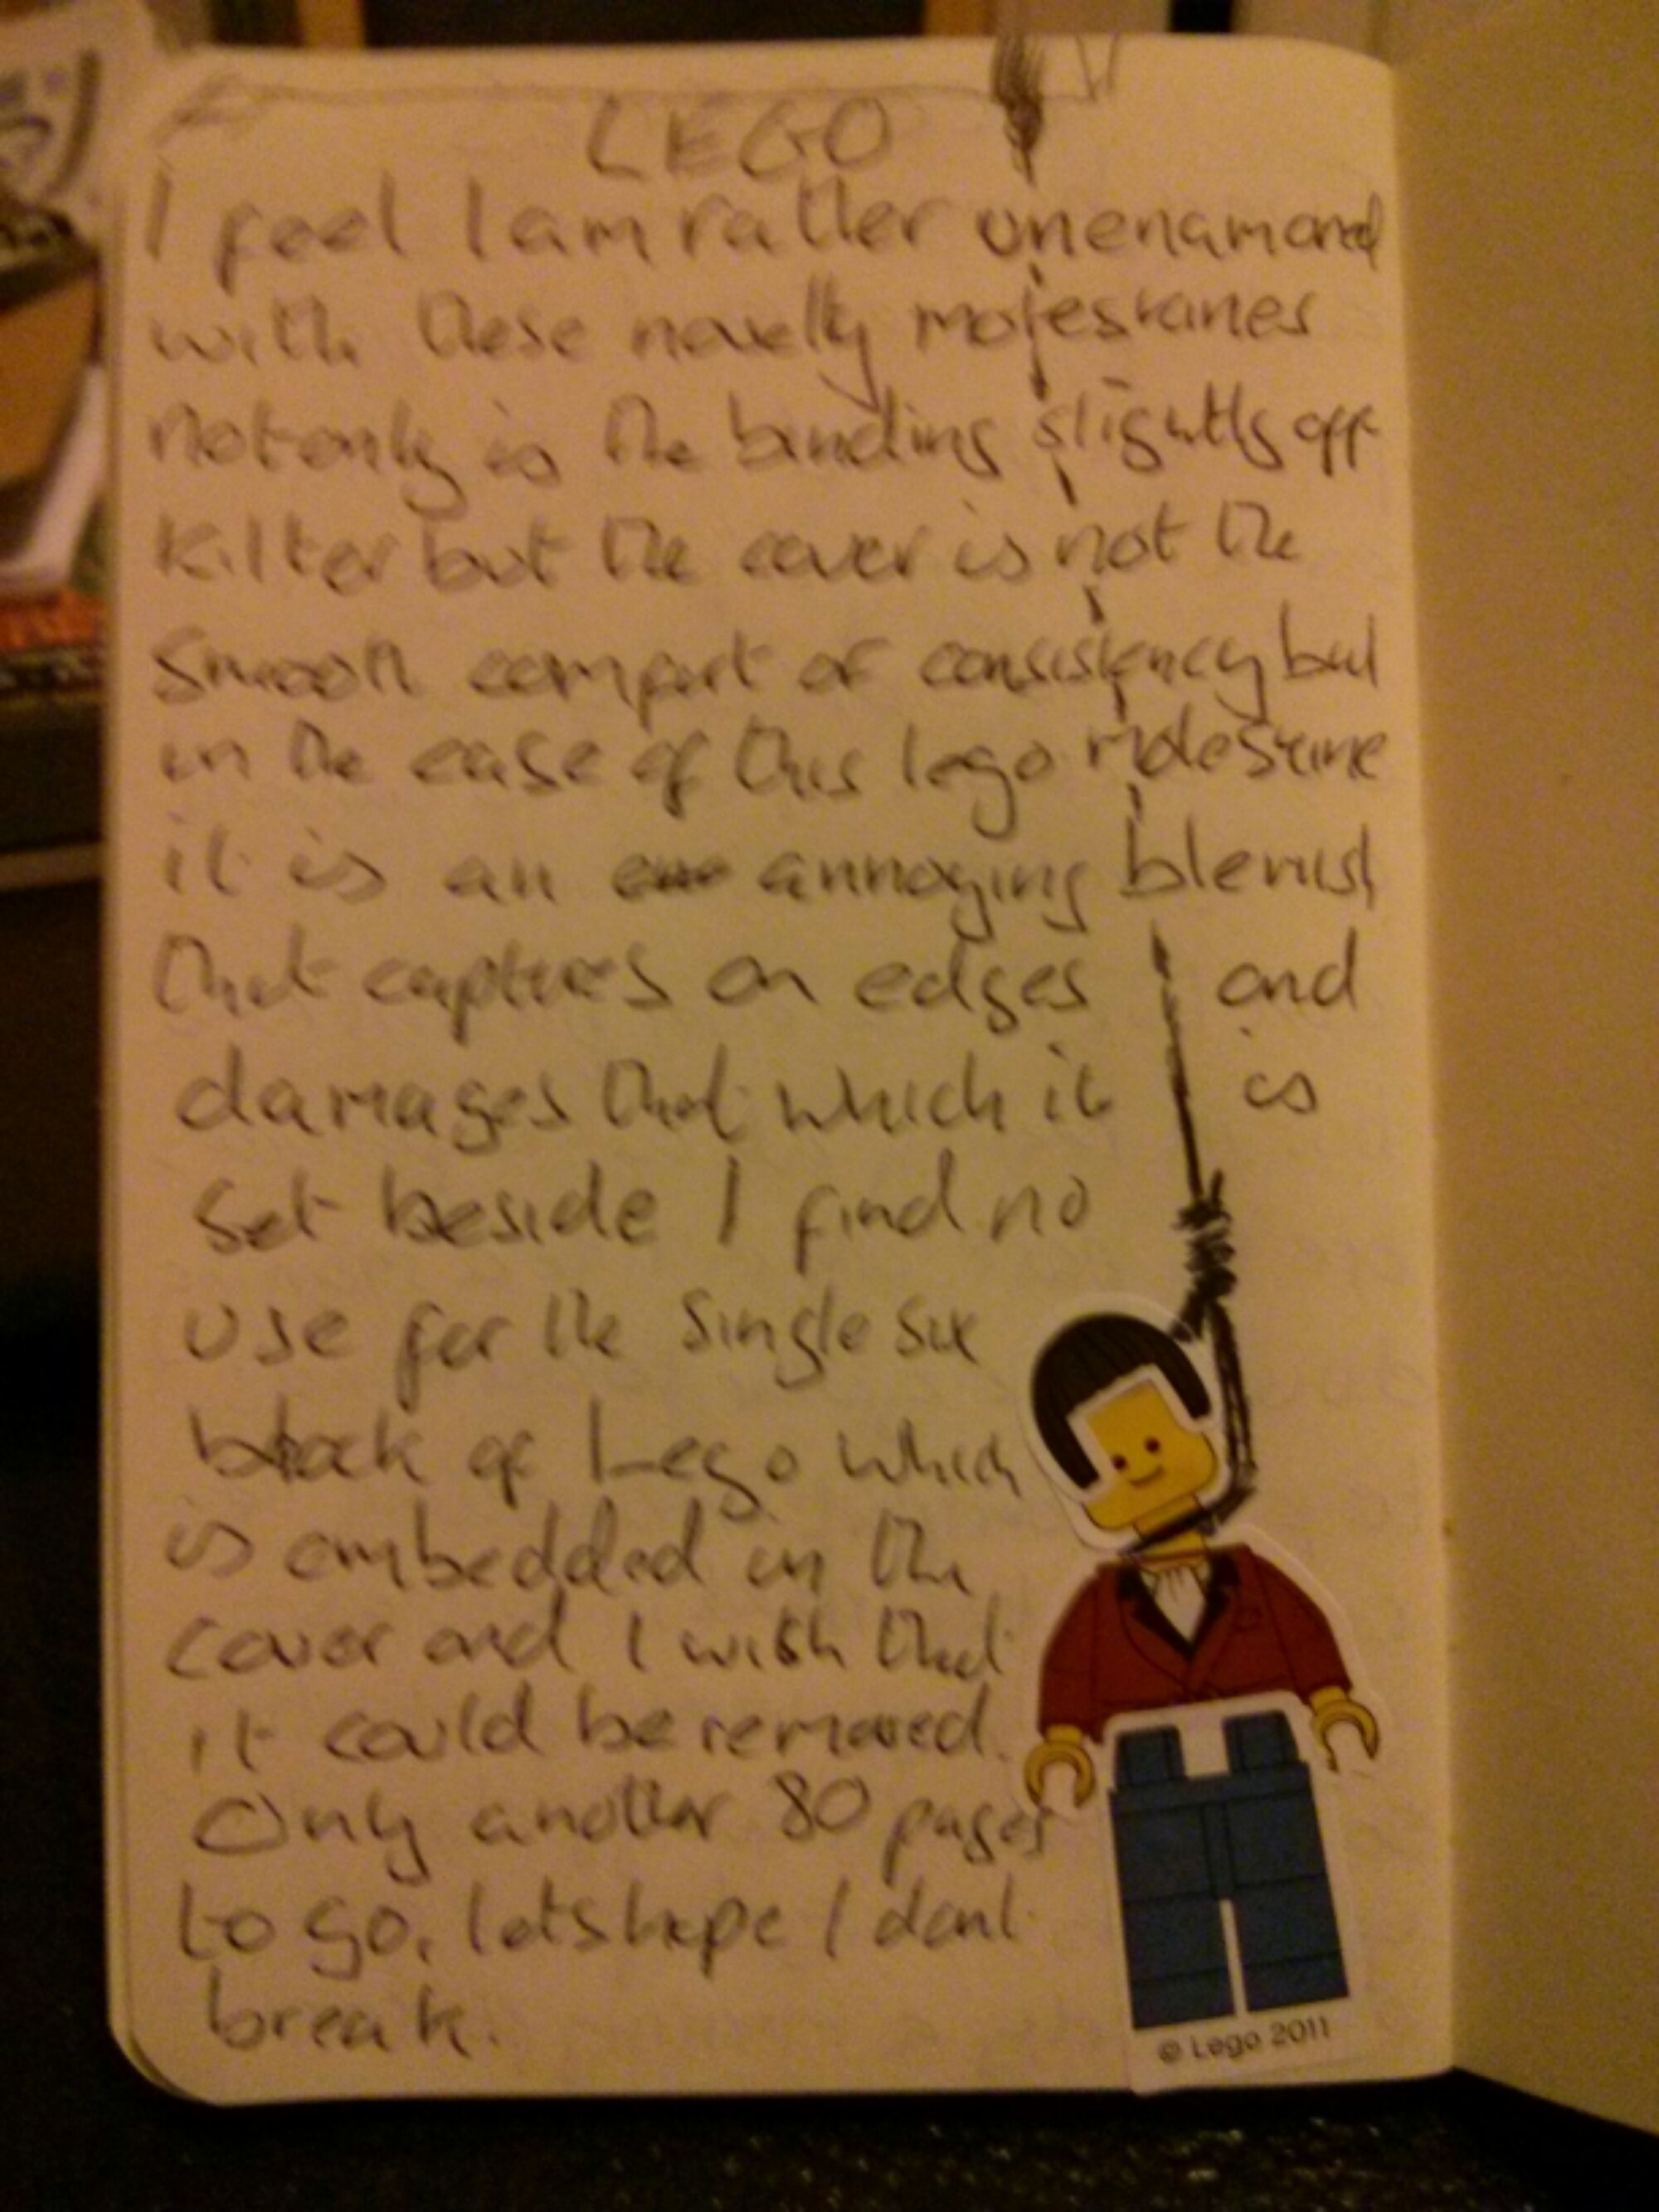 LEGO
I feel I am rather unenamored
with these novelty moleskines
not only is the binding slightly off
kilter but the cover is not the
smooth comfort of consistency but
in the case of this lego moleskine
it is an annoying blemish
that captures on edges and
damages that which it is
set beside I find no
use for the single six
block of Lego which
is embedded in the
cover and I wish that
it could be removed.
Only another 80 pages
to go, lets hope I dont
break.
© Lego 2011